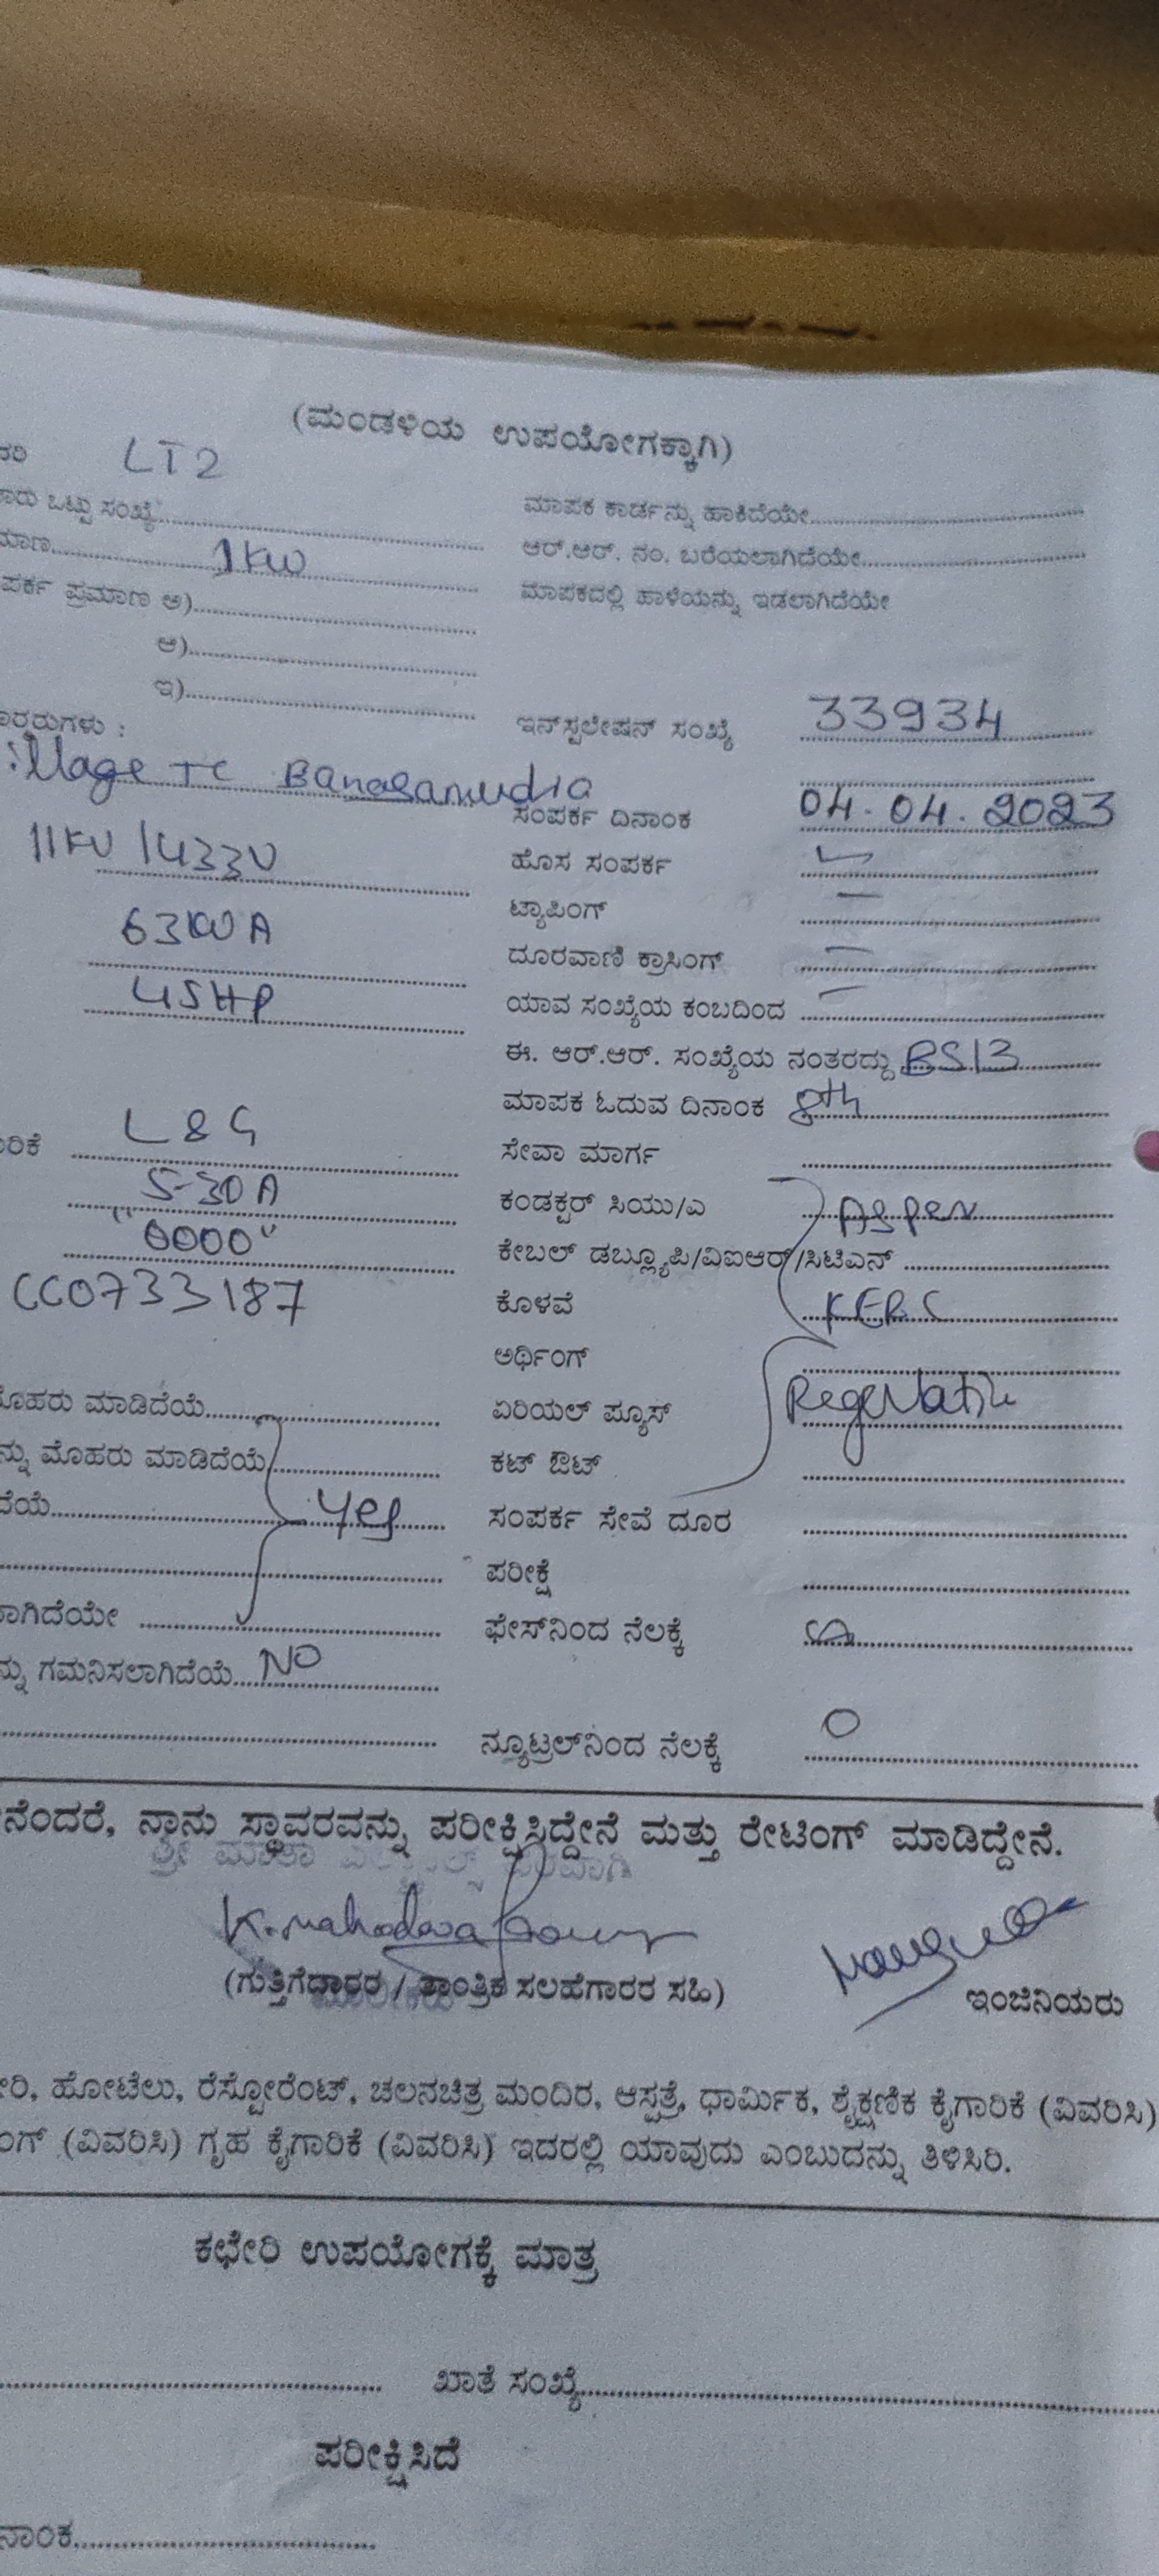 (ಮಂಡಳಿಯ ಉಪಯೋಗಕ್ಕಾಗಿ)
LT2
ಒಟ್ಟು ಸಂಖ್ಯೆ
ಮಾಪಕ ಕಾರ್ಡನ್ನು ಹಾಕಿದೆಯೇ
1KW
ಆರ್.ಆರ್. ನಂ. ಬರೆಯಲಾಗಿದೆಯೇ
ಪ್ರಮಾಣ ಅ)
ಮಾಪಕದಲ್ಲಿ ಹಾಳೆಯನ್ನು ಇಡಲಾಗಿದೆಯೇ
ಆ)
ಇ)
ಇನ್‌ಸ್ಟಲೇಷನ್ ಸಂಖ್ಯೆ 33934
illage TC Banasamudra
ಸಂಪರ್ಕ ದಿನಾಂಕ 04.04.2023
11KV/433V
ಹೊಸ ಸಂಪರ್ಕ
63KVA
ಟ್ಯಾಪಿಂಗ್ –
ದೂರವಾಣಿ ಕ್ರಾಸಿಂಗ್ –
45HP
ಯಾವ ಸಂಖ್ಯೆಯ ಕಂಬದಿಂದ –
ಈ. ಆರ್.ಆರ್. ಸಂಖ್ಯೆಯ ನಂತರದ್ದು BS13
ಮಾಪಕ ಓದುವ ದಿನಾಂಕ 8th
L&G
ಸೇವಾ ಮಾರ್ಗ
5-30A
ಕಂಡಕ್ಟರ್ ಸಿಯು/ಎ As per
"0000"
ಕೇಬಲ್ ಡಬ್ಲ್ಯೂಪಿ/ವಿಐಆರ್/ಸಿಟಿಎನ್
CC0733187
ಕೊಳವೆ KERC
ಅರ್ಥಿಂಗ್
ಮಾಡಿದೆಯೆ
ಏರಿಯಲ್ ಪ್ಯೂಸ್
ಮೊಹರು ಮಾಡಿದೆಯೆ
ಕಟ್ ಔಟ್
Yes
ಸಂಪರ್ಕ ಸೇವೆ ದೂರ
ಪರೀಕ್ಷೆ
ಫೇಸ್‌ನಿಂದ ನೆಲಕ್ಕೆ
ಗಮನಿಸಲಾಗಿದೆಯೆ NO
ನ್ಯೂಟ್ರಲ್‌ನಿಂದ ನೆಲಕ್ಕೆ 0
ನಾನು ಸ್ಥಾವರವನ್ನು ಪರೀಕ್ಷಿಸಿದ್ದೇನೆ ಮತ್ತು ರೇಟಿಂಗ್ ಮಾಡಿದ್ದೇನೆ.
(ಗುತ್ತಿಗೆದಾರರ / ತಾಂತ್ರಿಕ ಸಲಹೆಗಾರರ ಸಹಿ)
ಇಂಜಿನಿಯರು
ಹೋಟೆಲು, ರೆಸ್ಟೋರೆಂಟ್, ಚಲನಚಿತ್ರ ಮಂದಿರ, ಆಸ್ಪತ್ರೆ, ಧಾರ್ಮಿಕ, ಶೈಕ್ಷಣಿಕ ಕೈಗಾರಿಕೆ (ವಿವರಿಸಿ)
(ವಿವರಿಸಿ) ಗೃಹ ಕೈಗಾರಿಕೆ (ವಿವರಿಸಿ) ಇದರಲ್ಲಿ ಯಾವುದು ಎಂಬುದನ್ನು ತಿಳಿಸಿರಿ.
ಕಛೇರಿ ಉಪಯೋಗಕ್ಕೆ ಮಾತ್ರ
ಖಾತೆ ಸಂಖ್ಯೆ
ಪರೀಕ್ಷಿಸಿದೆ